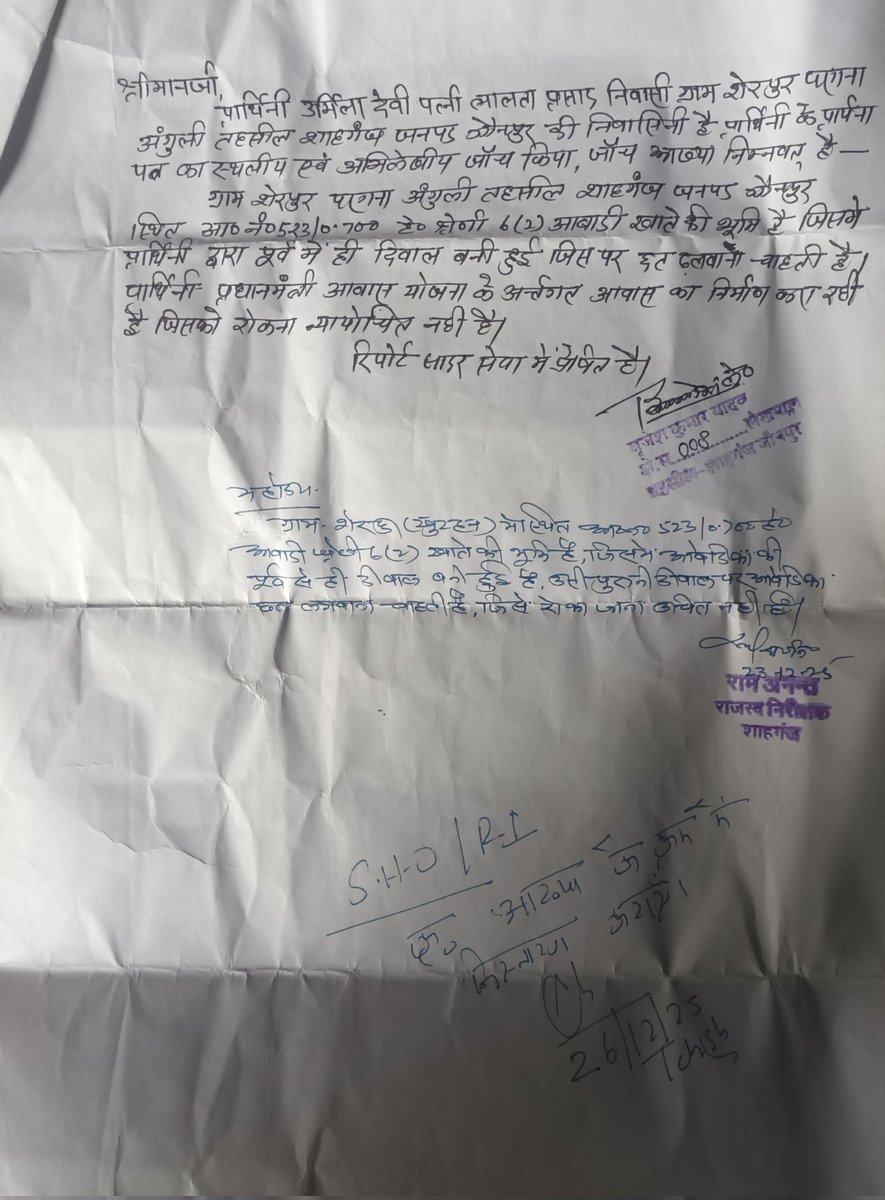 श्रीमानजी,
प्रार्थिनी उर्मिला देवी पत्नी लालता प्रसाद निवासी ग्राम शेरपुर परगना
अंगुली तहसील शाहगंज जनपद जौनपुर की निवासिनी है, प्रार्थिनी के प्रार्थना
पत्र का स्थलीय एवं अभिलेखीय जाँच किया, जाँच आख्या निम्नवत् है —
ग्राम शेरपुर परगना अंगुली तहसील शाहगंज जनपद जौनपुर
स्थित आ० नं० 523/0.700 हे० श्रेणी 6(2) आबादी खाते की भूमि है जिसमे
प्रार्थिनी द्वारा पूर्व में ही दिवाल बनी हुई जिस पर छत ढलवाना चाहती है।
प्रार्थिनी प्रधानमंत्री आवास योजना के अर्न्तगत आवास का निर्माण करा रही
है जिसको रोकना न्यायोचित नही है।
रिपोर्ट सादर सेवा में प्रेषित है।
बृजेश कुमार यादव
क्षे.स. 008 लेखपाल
तहसील-शाहगंज जौनपुर
महोदय.
ग्राम- में स्थित 523/0.700 हे०
आबादी श्रेणी 6(2) खाते की भूमि है, जिसमे आवेदिका की
पूर्व से ही दीवाल बनी हुई है, उसी पुरानी दीवाल पर आवेदिका
छत लगवाना चाहती है, जिसे रोका जाना उचित नही है।
23-12-25
राम अनन्त
राजस्व निरीक्षक
शाहगंज
S.H.O / R.I
कृ० आख्या के क्रम में
निस्तारण करायें।
26/12/25